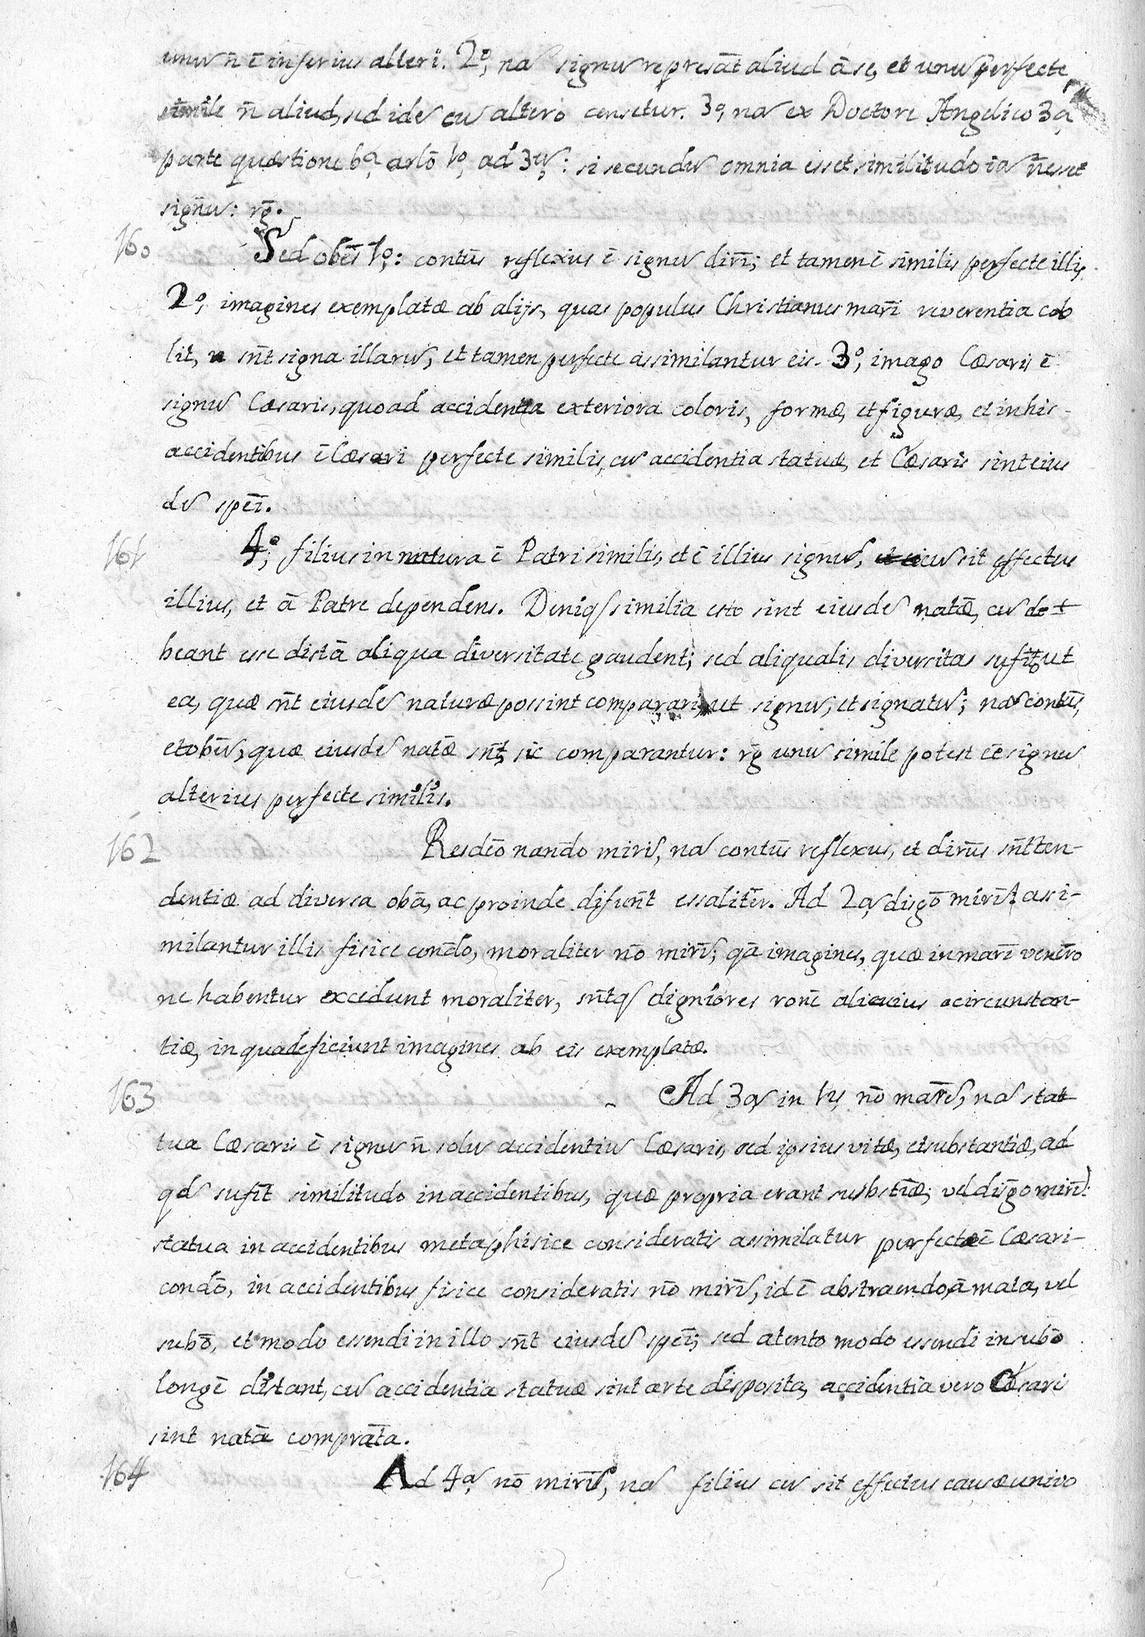 unũ ñ ē inferius alteri. 2º, nã signũ represāt aliud ā se, et unũ perfecte
simile ñ aliud, sed idẽ cũ altero censetur. 3º, nã ex Doctore Angelico 3ª
parte quæstione 6ª, arlō 1º, ad 3ũ: si secundũ omnia esset similitudo iã ñ esset
signũ: rg̃.
160 Sed obẽs 1º: contũs reflexius ē signũ dirī; et tamen ē similis perfecte illi,
2º, imagines exemplatæ ab alijs, quas populus Christianus marī reverentia cob
lit, sñt signa illarũ, et tamen perfecte assimilantur eis. 3º, imago Cæsaris ē
signũ Cæsaris, quoad accidentia exteriora coloris, formæ, et figuræ, et in his
accidentibus ē Cæsari perfecte similis, cũ accidentia statuæ, et Cæsaris sint eius
dẽ speī.
161 4º, filius in natura ē Patri similis, et ē illius signũ, cũ sit effectus
illius, et ā Patre dependens. Deniq̃ similia esto sint eiusdẽ natæ̃, cũ de
beant esse distã aliqua diversitate gaudent; sed aliqualis diversitas sufīt, ut
ea, quæ sñt eiusdẽ naturæ possint comparari, ut signũ, et signatũ; nã contũs,
et obũ, quæ eiusdẽ natæ̃ sñt, sic comparantur: rg̃ unũ simile potest ēe signũ
alterius perfecte similis.
162 Resdēo nando mirẽ, nã contũs reflexus, et dirũs sñt ten-
dentiæ ad diversa obã, ac proinde difũnt essalitẽr. Ad 2ã, disgō mirẽ: asi-
milantur illis fisice condō, moraliter nō mirẽ; qã imagines, quæ in marī venerō
ne habentur excedunt moraliter, sñtq̃ digniores ronẽ alicuius circunstan-
tiæ, in qua deficiunt imagines ab eis exemplatæ.
163 Ad 3ã in 1ũ, nō marẽ, nã stat
tua Cæsaris ē signũ ñ solũ accidentiũ Cæsaris, sed ipsius vitæ, et substantiæ, ad
qd̃ sufīt similitudo in accidentibus, quæ propria erant susbstiæ̃; vel disgō mirẽ:
statua in accidentibus metaphisice consideratis assimilatur perfecte Cæsari
condō, in accidentibus fisice consideratis nō mirẽ, id ē abstraendo ā mata, vel
subō, et modo essendi in illo sñt eiusdẽ speī; sed atento modo essendi in subō
longē distant, cũ accidentia statuæ sint arte disposita, accidentia vero Cæsari
sint natã comprāta.
164 Ad 4ã, nō mirẽ, nã filius cũ sit effectus causæ univo